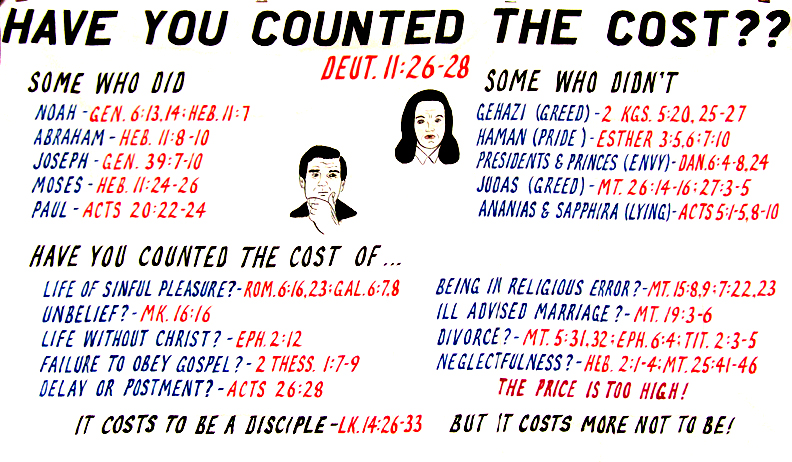 HAVE YOU COUNTED THE COST??
DEUT. 11:26-28
SOME WHO DID
NOAH - GEN. 6:13,14; HEB. 11:7
ABRAHAM - HEB. 11:8-10
JOSEPH - GEN. 39:7-10
MOSES - HEB. 11:24-26
PAUL - ACTS 20:22-24
SOME WHO DIDN'T
GEHAZI (GREED) - 2 KGS. 5:20, 25-27
HAMAN (PRIDE) - ESTHER 3:5,6; 7:10
PRESIDENTS & PRINCES (ENVY) - DAN. 6:4-8,24
JUDAS (GREED) - MT. 26:14-16; 27:3-5
ANANIAS & SAPPHIRA (LYING) - ACTS 5:1-5,8-10
HAVE YOU COUNTED THE COST OF...
LIFE OF SINFUL PLEASURE? - ROM. 6:16,23; GAL. 6:7,8
UNBELIEF? - MK. 16:16
LIFE WITHOUT CHRIST? - EPH. 2:12
FAILURE TO OBEY GOSPEL? - 2 THESS. 1:7-9
DELAY OR POSTMENT? - ACTS 26:28
BEING IN RELIGIOUS ERROR? - MT. 15:8,9; 7:22,23
ILL ADVISED MARRIAGE? - MT. 19:3-6
DIVORCE? - MT. 5:31,32; EPH. 6:4; TIT. 2:3-5
NEGLECTFULNESS? - HEB. 2:1-4; MT. 25:41-46
THE PRICE IS TOO HIGH!
IT COSTS TO BE A DISCIPLE - LK. 14:26-33
BUT IT COSTS MORE NOT TO BE!